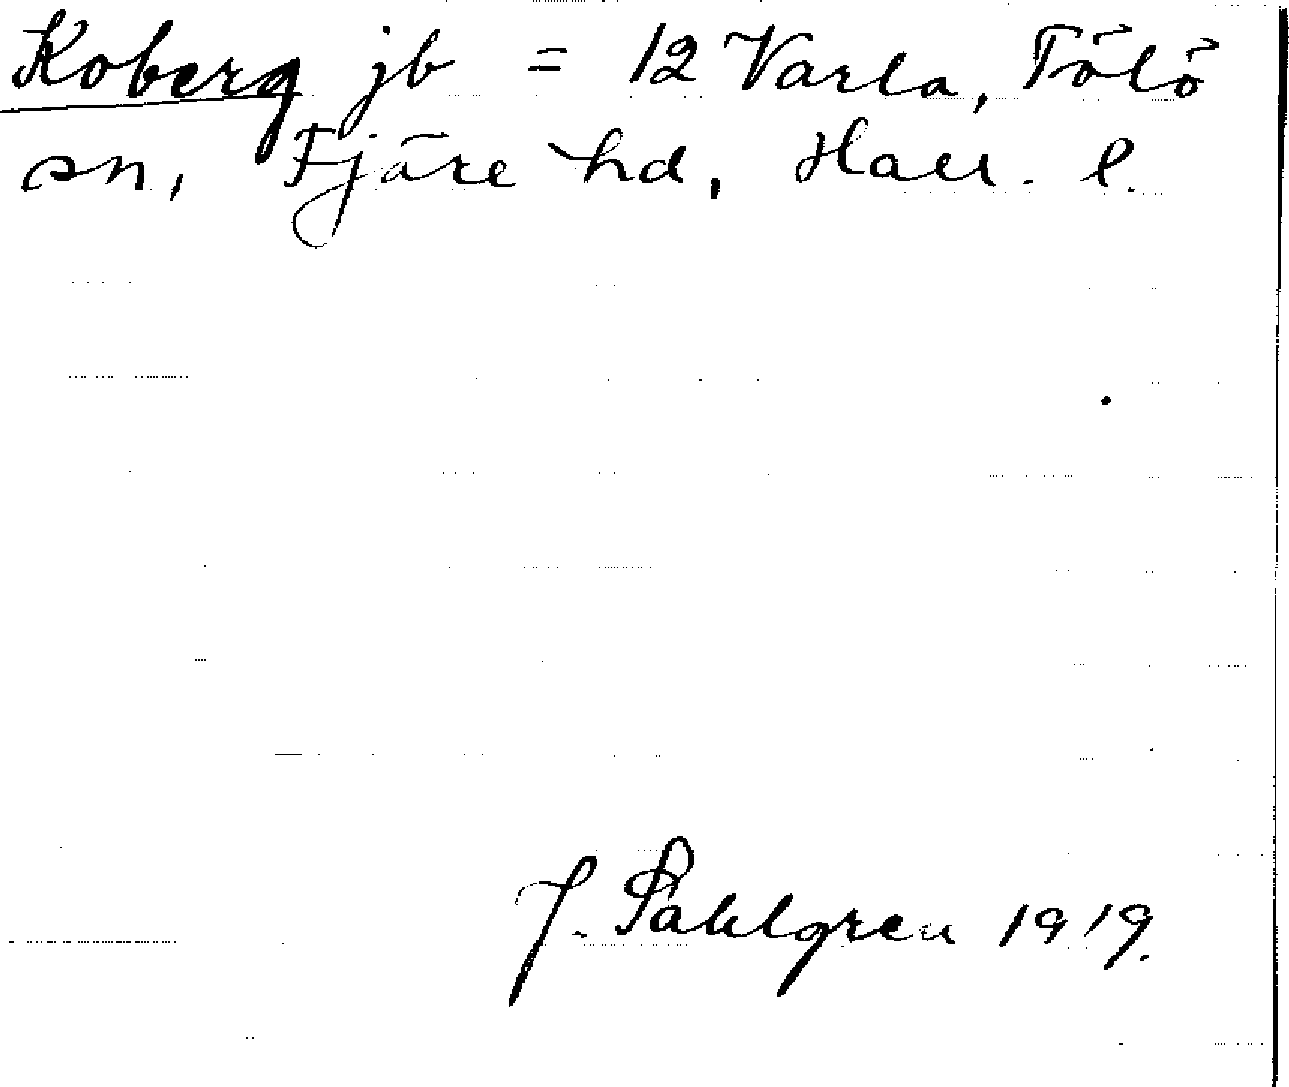 Koberg jb = 12 Varla, Tölö
sn, Fjäre hd, Hall. l.
J. Sahlgren 1919.